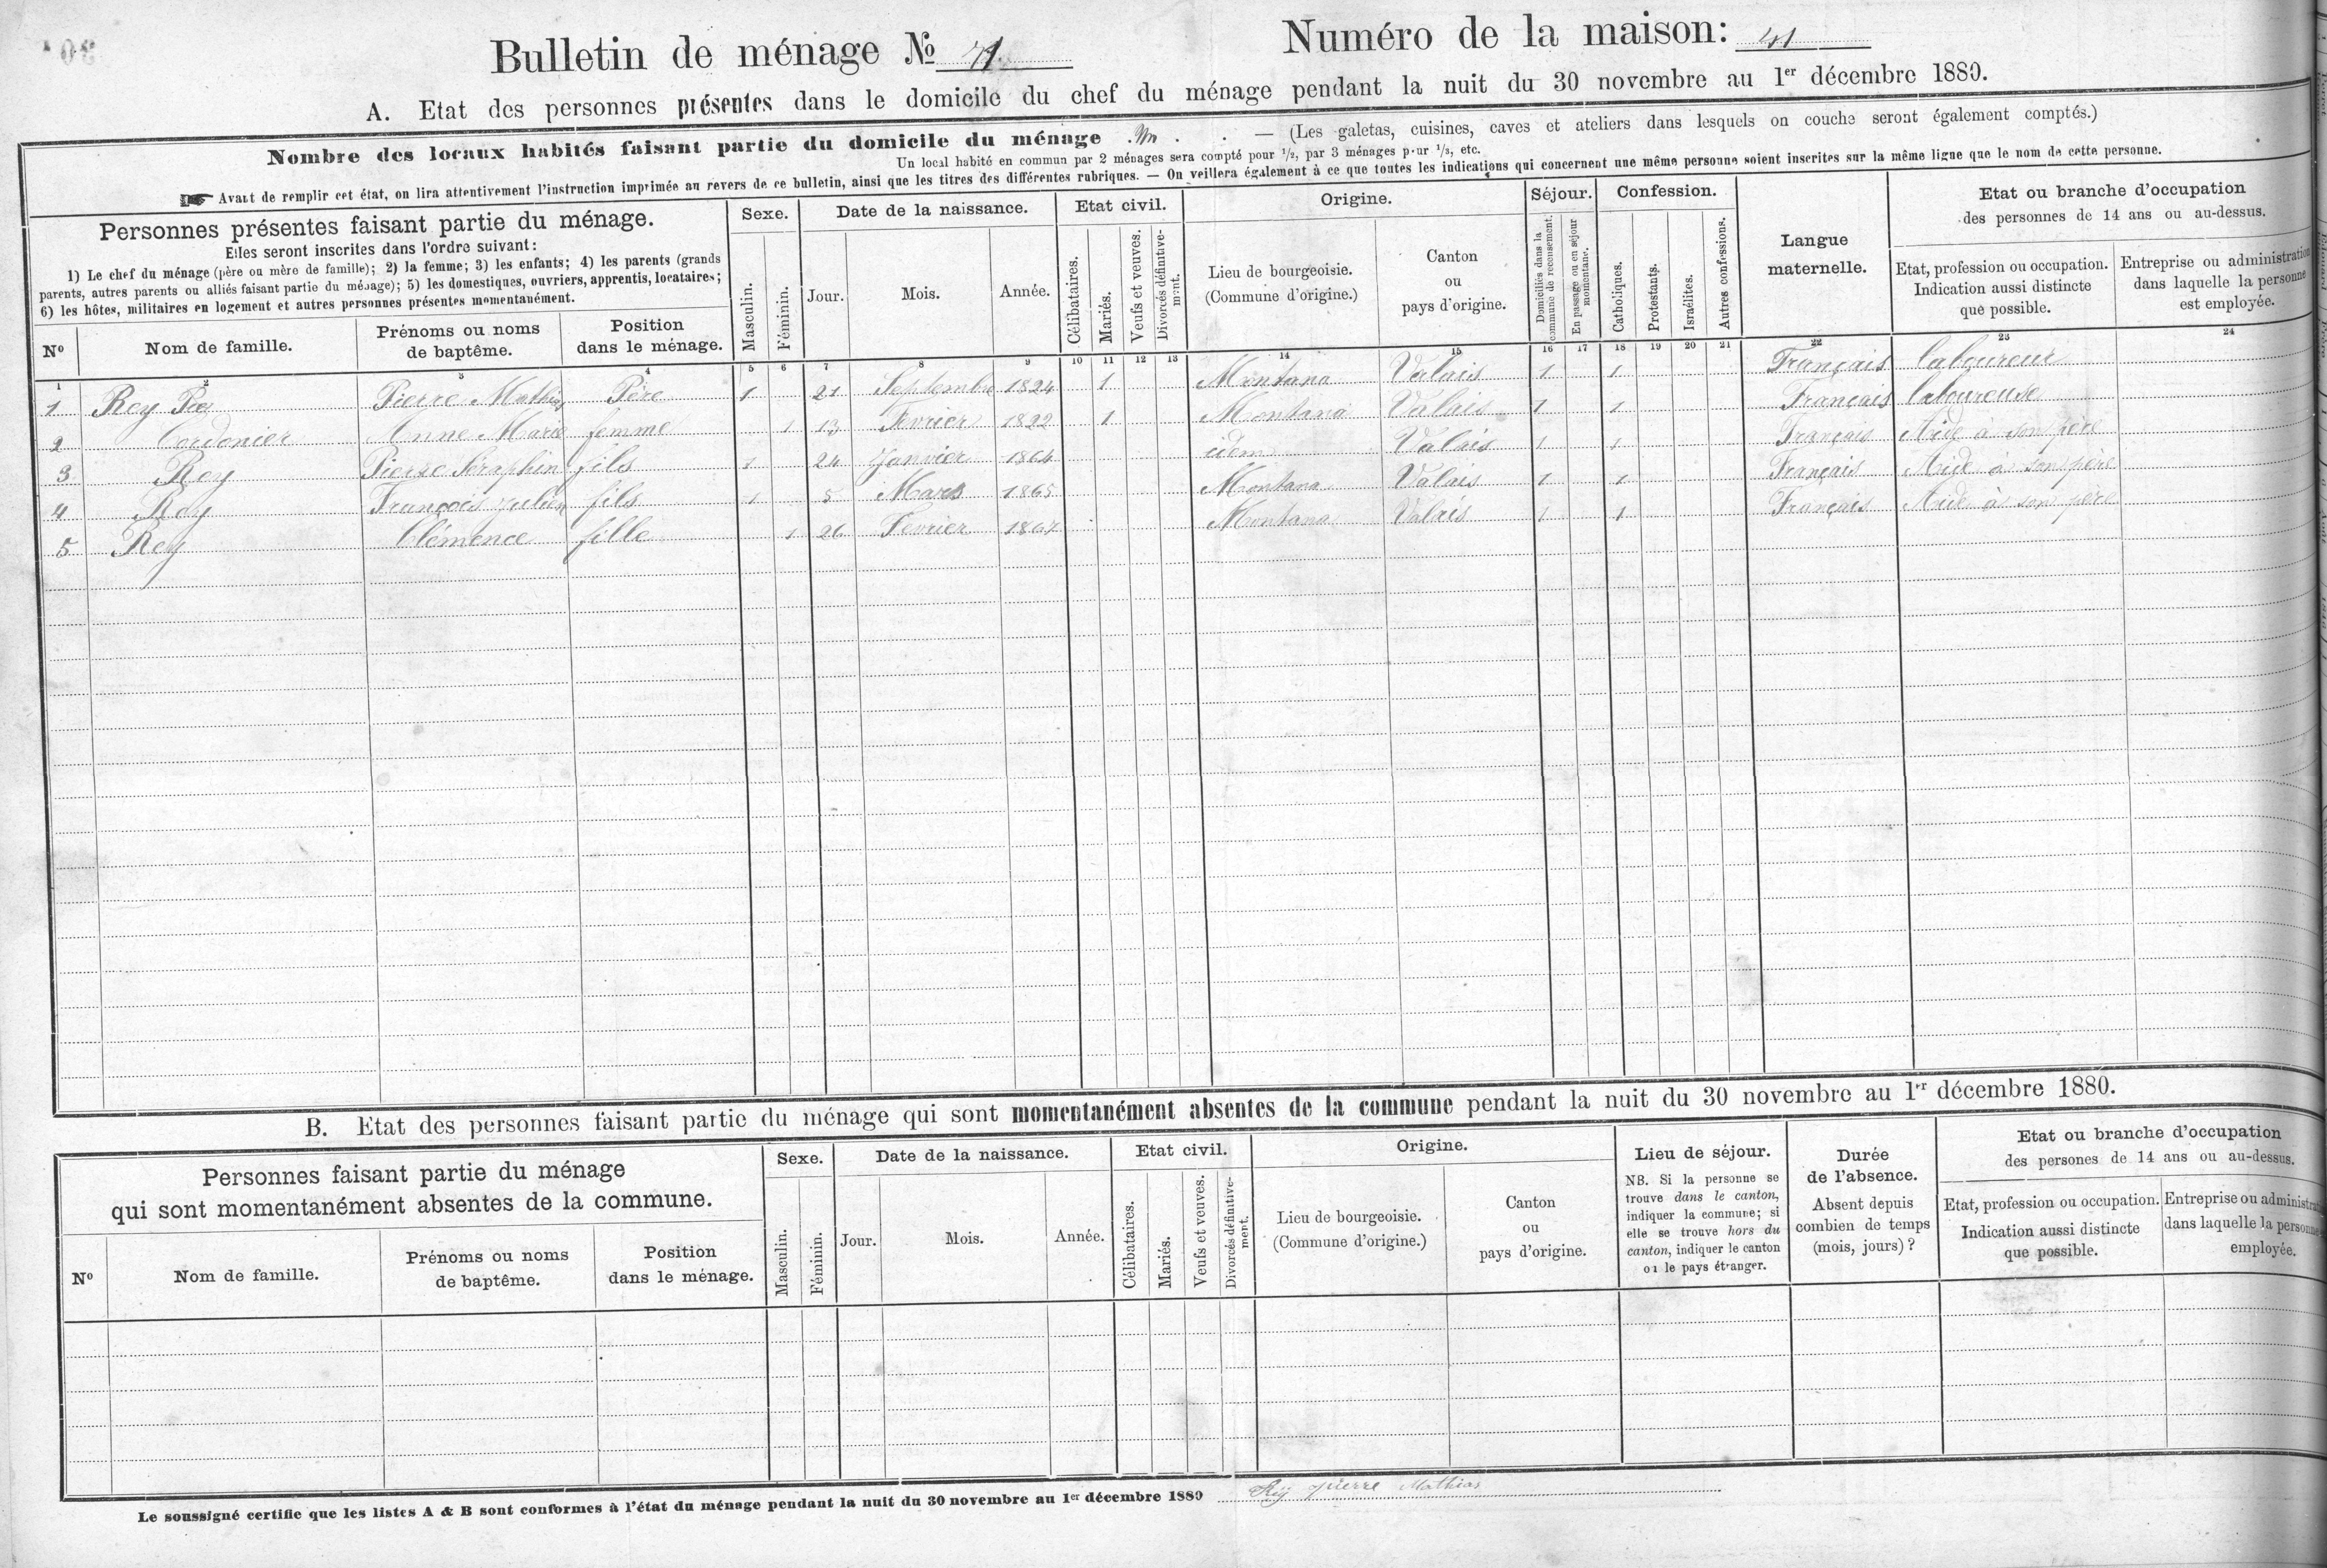 Bulletin de ménage № 71. Numéro de la maison: 41
A. Etat des personnes présentes dans le domicile du chef du ménage pendant la nuit du 30 novembre au 1er décembre 1880.
Nombre des locaux habités faisant partie du domicile du ménage . . — (Les galetas, cuisines, caves et ateliers dans lesquels on couche seront également comptés.)
Un local habité en commun par 2 ménages sera compté pour 1/2, par 3 ménages pour 1/3, etc.
Avant de remplir cet état, on lira attentivement l'instruction imprimée au revers de ce bulletin, ainsi que les titres des différentes rubriques. — On veillera également à ce que toutes les indications qui concernent une même personne soient inscrites sur la même ligne que le nom de cette personne.
Personnes présentes faisant partie du ménage.
Elles seront inscrites dans l'ordre suivant:
1) Le chef du ménage (père ou mère de famille); 2) la femme; 3) les enfants; 4) les parents (grands
parents, autres parents ou alliés faisant partie du ménage); 5) les domestiques, ouvriers, apprentis, locataires;
6) les hôtes, militaires en logement et autres personnes présentes momentanément.
Nº
Nom de famille.
Prénoms ou noms
de baptême.
Position
dans le ménage.
Sexe.
Masculin.
Féminin.
Date de la naissance.
Jour.
Mois.
Année.
Etat civil.
Célibataires.
Mariés.
Veufs et veuves.
Divorcés définitive-
ment.
Origine.
Lieu de bourgeoisie.
(Commune d'origine.)
Canton
ou
pays d'origine.
Séjour.
Domiciliés dans la
commune de recensement.
En passage ou en séjour
momentané.
Confession.
Catholiques.
Protestants.
Israélites.
Autres confessions.
Langue
maternelle.
Etat ou branche d'occupation
des personnes de 14 ans ou au-dessus.
Etat, profession ou occupation.
Indication aussi distincte
que possible.
Entreprise ou administration
dans laquelle la personne
est employée.
1 2 3 4 5 6 7 8 9 10 11 12 13 14 15 16 17 18 19 20 21 22 23 24
1 Rey Pierre Mathias Père 1 21 Septembre 1824 1 Montana Valais 1 1 Français laboureur
2 Cordonier Anne Marie femme 1 13 Fevrier 1822 1 Montana Valais 1 1 Français laboureuse
3 Rey Pierre Séraphin fils 1 24 Janvier 1864 idem Valais 1 1 Français Aide à son père
4 Rey François Julien fils 1 5 Mars 1865 Montana Valais 1 1 Français Aide à son père
5 Rey Clémence fille 1 26 Fevrier 1867 Montana Valais 1 1 Français Aide à son père
B. Etat des personnes faisant partie du ménage qui sont momentanément absentes de la commune pendant la nuit du 30 novembre au 1er décembre 1880.
Personnes faisant partie du ménage
qui sont momentanément absentes de la commune.
Nº
Nom de famille.
Prénoms ou noms
de baptême.
Position
dans le ménage.
Sexe.
Masculin.
Féminin.
Date de la naissance.
Jour.
Mois.
Année.
Etat civil.
Célibataires.
Mariés.
Veufs et veuves.
Divorcés définitive-
ment.
Origine.
Lieu de bourgeoisie.
(Commune d'origine.)
Canton
ou
pays d'origine.
Lieu de séjour.
NB. Si la personne se
trouve dans le canton,
indiquer la commune; si
elle se trouve hors du
canton, indiquer le canton
ou le pays étranger.
Durée
de l'absence.
Absent depuis
combien de temps
(mois, jours)?
Etat ou branche d'occupation
des persones de 14 ans ou au-dessus.
Etat, profession ou occupation.
Indication aussi distincte
que possible.
Entreprise ou administra
dans laquelle la personne
employée.
Le soussigné certifie que les listes A & B sont conformes à l'état du ménage pendant la nuit du 30 novembre au 1er décembre 1880 Rey pierre Mathias